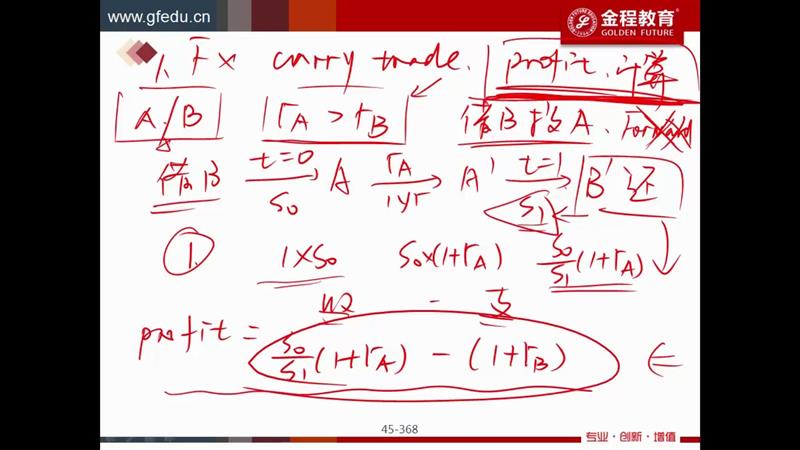 www.gfedu.cn
金程教育
GOLDEN FUTURE
1. Fx carry trade. profit. 计算
A/B rA > rB 借B投A. Forward
借B t=0 S0 A rA 1yr A' t=1 S1 B' 还
① 1×S0 S0×(1+rA) S0/S1(1+rA)
收 - 支
profit = S0/S1(1+rA) - (1+rB)
45-368
专业·创新·增值